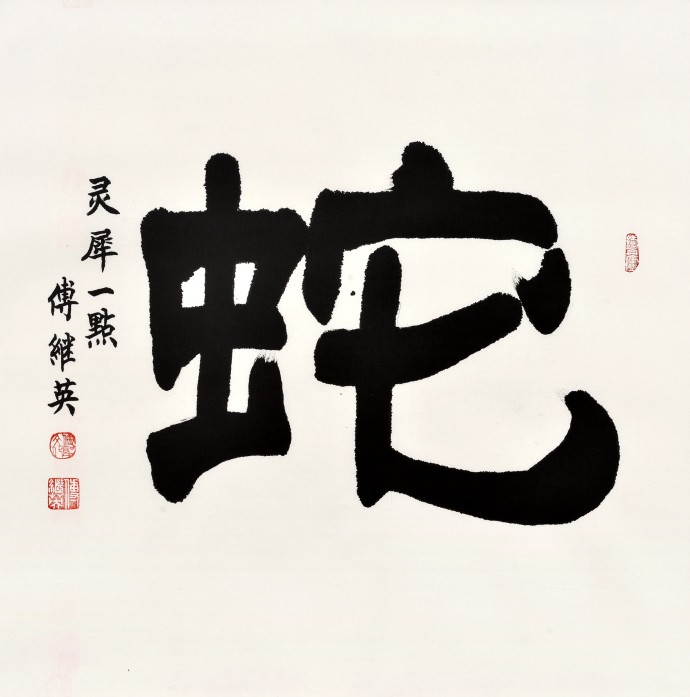 蛇
灵犀一點
傅继英